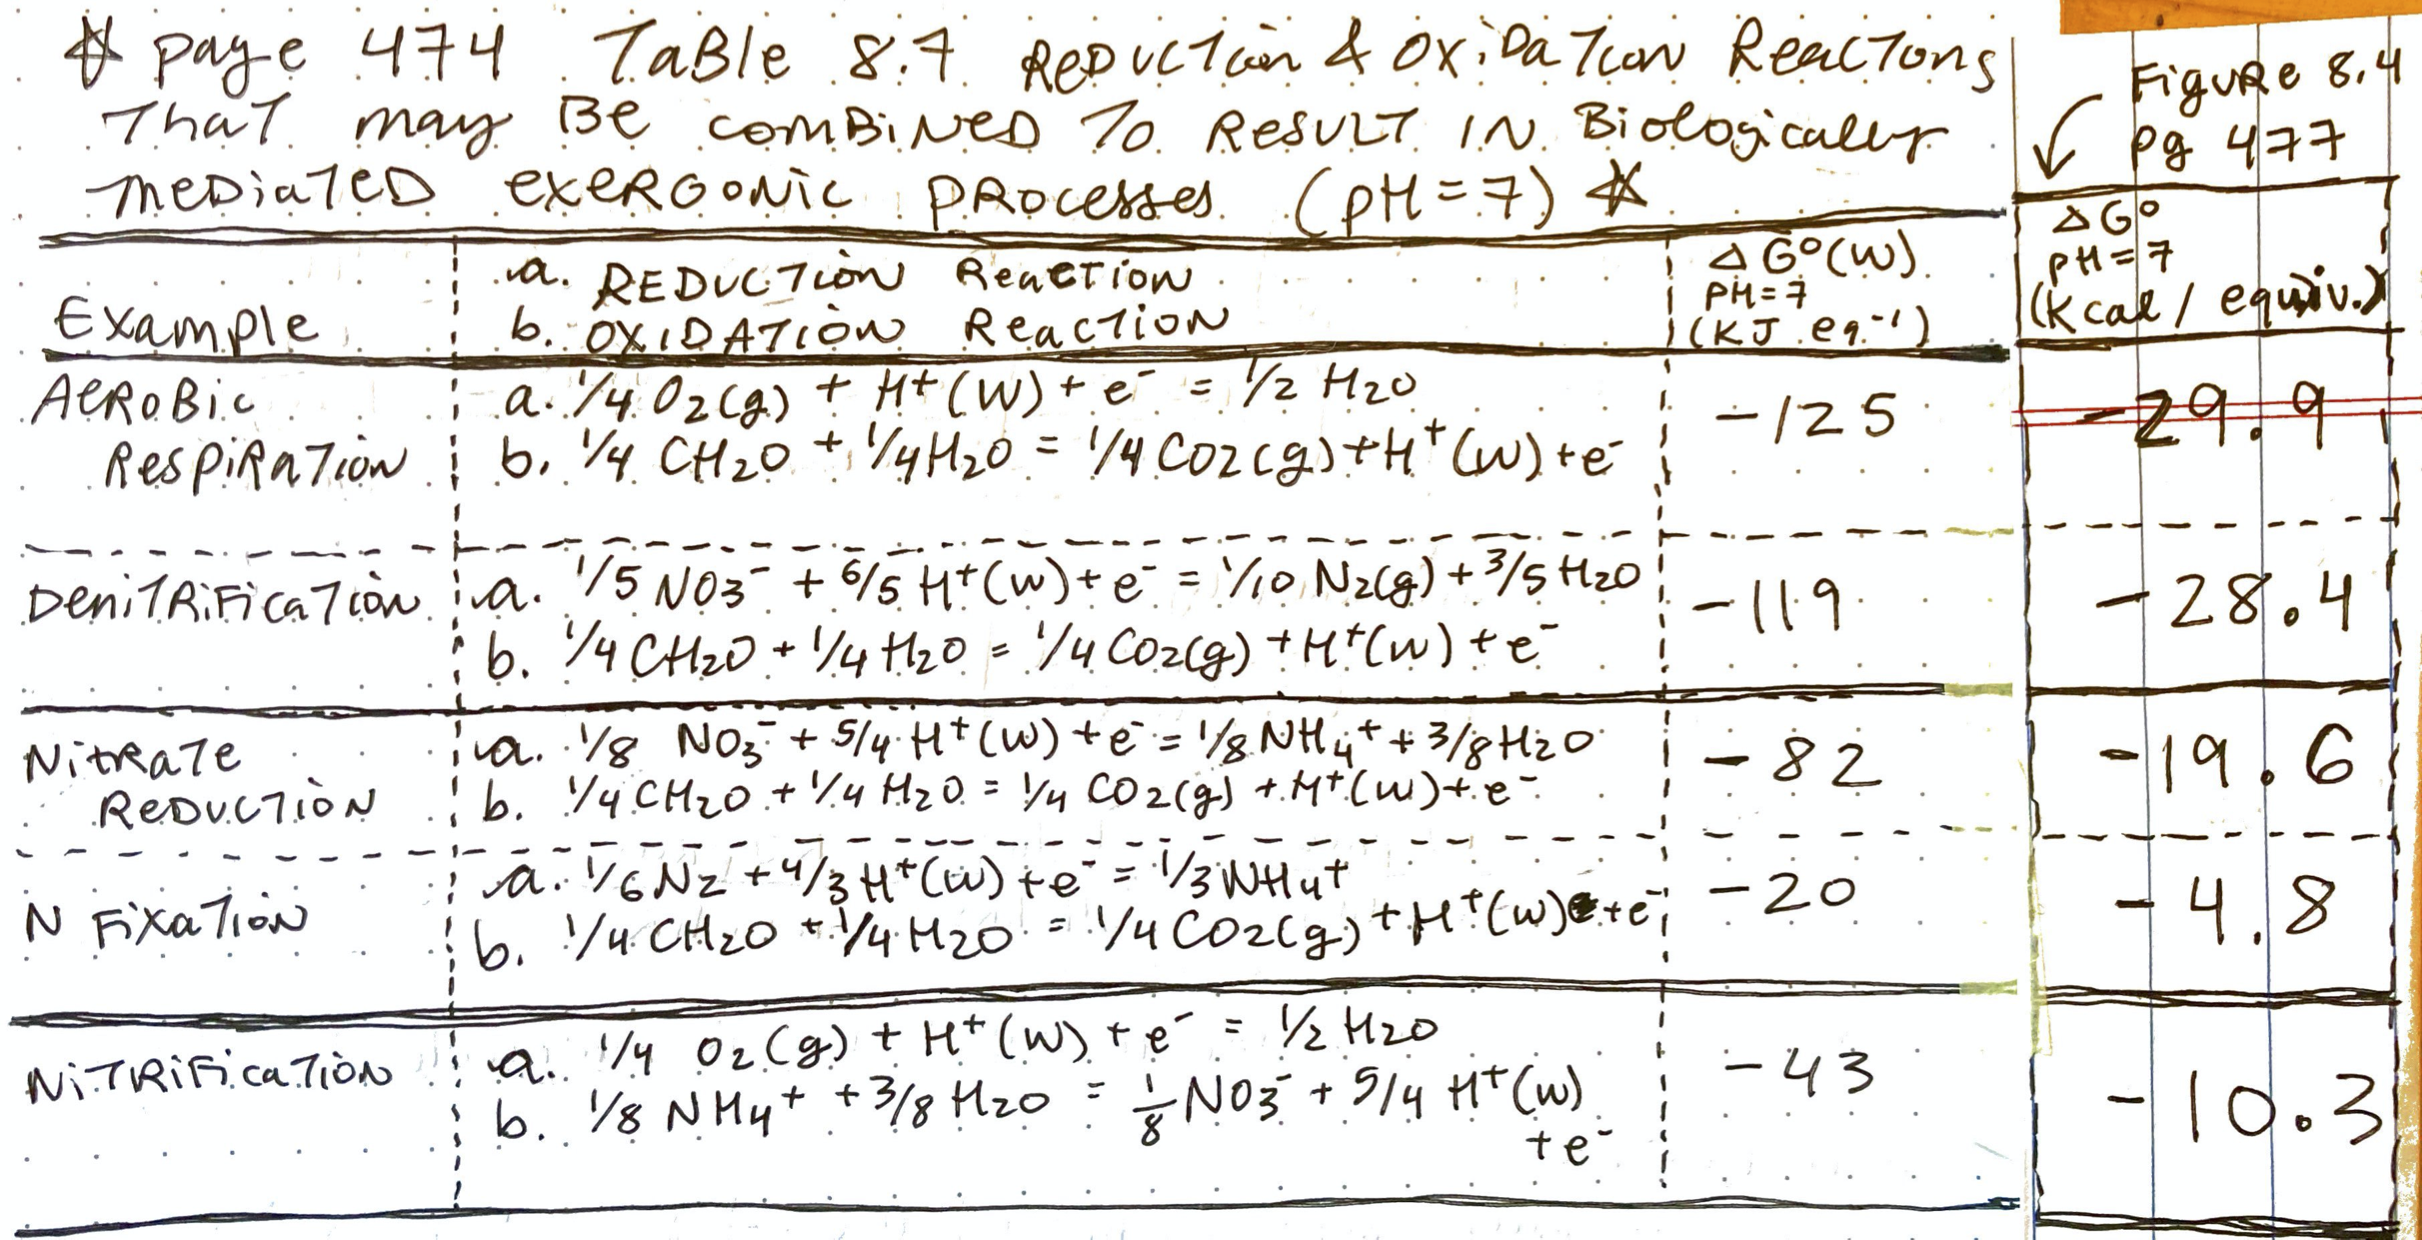 ☆ page 474 Table 8.7 Reduction & Oxidation Reactions
that may be combined to result in Biologically
mediated exergonic processes (pH=7) ☆
Figure 8.4
pg 477
Example
a. REDUCTION Reaction
b. OXIDATION Reaction
ΔG°(W)
PH=7
(KJ eq.⁻¹)
ΔG°
pH=7
(Kcal/equiv.)
Aerobic
Respiration
a. 1/4 O₂(g) + H⁺(W) + e⁻ = 1/2 H₂O
b. 1/4 CH₂O + 1/4 H₂O = 1/4 CO₂(g) + H⁺(W) + e⁻
-125
-29.9
Denitrification
a. 1/5 NO₃⁻ + 6/5 H⁺(W) + e⁻ = 1/10 N₂(g) + 3/5 H₂O
b. 1/4 CH₂O + 1/4 H₂O = 1/4 CO₂(g) + H⁺(W) + e⁻
-119
-28.4
Nitrate
Reduction
a. 1/8 NO₃⁻ + 5/4 H⁺(W) + e⁻ = 1/8 NH₄⁺ + 3/8 H₂O
b. 1/4 CH₂O + 1/4 H₂O = 1/4 CO₂(g) + H⁺(W) + e⁻
-82
-19.6
N Fixation
a. 1/6 N₂ + 4/3 H⁺(W) + e⁻ = 1/3 NH₄⁺
b. 1/4 CH₂O + 1/4 H₂O = 1/4 CO₂(g) + H⁺(W) + e⁻
-20
-4.8
Nitrification
a. 1/4 O₂(g) + H⁺(W) + e⁻ = 1/2 H₂O
b. 1/8 NH₄⁺ + 3/8 H₂O = 1/8 NO₃⁻ + 5/4 H⁺(W)
+ e⁻
-43
-10.3